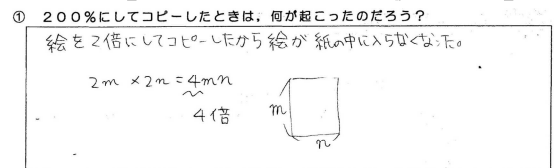 ① 200%にしてコピーしたときは,何が起こったのだろう?
絵を2倍にしてコピーしたから絵が紙の中に入らなくなった。
2m × 2n = 4mn
4倍
m
n